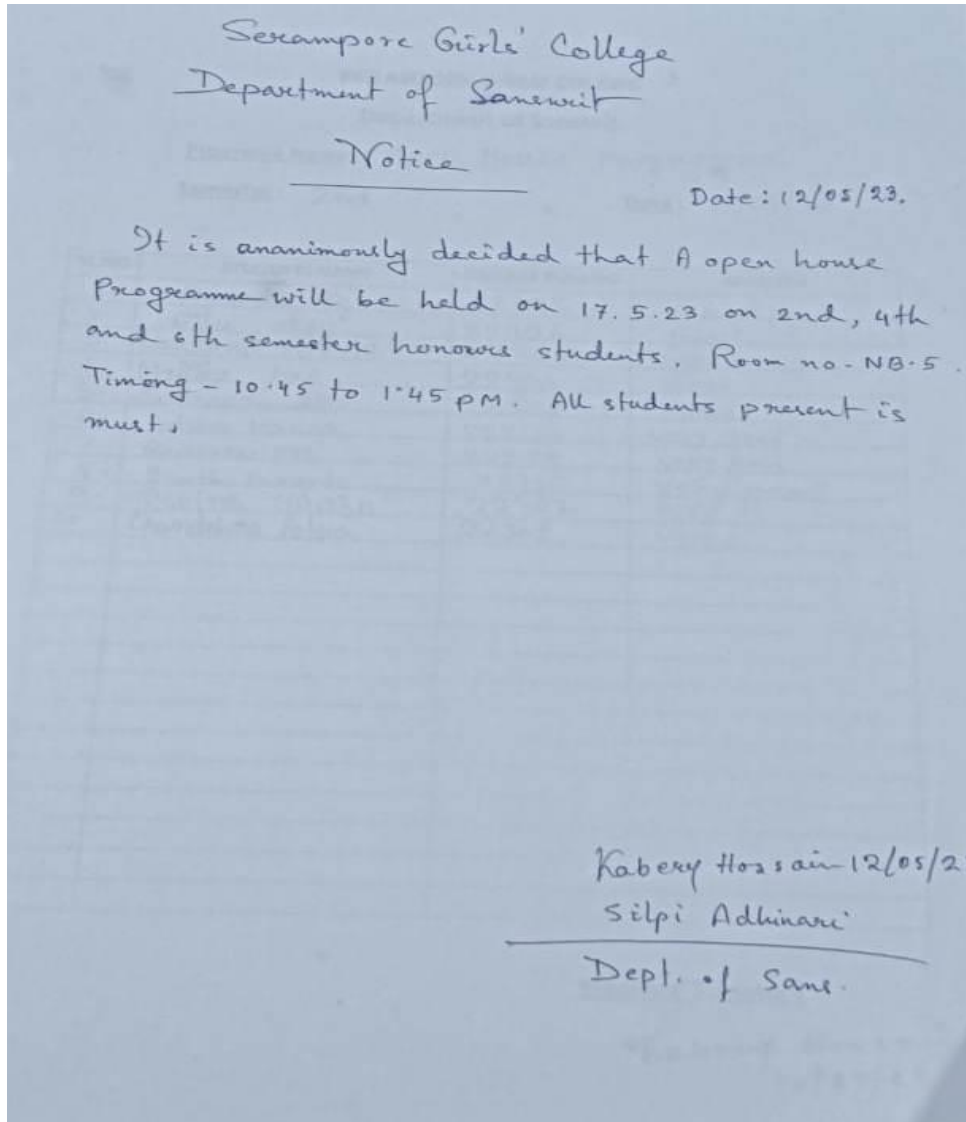 Serampore Girls' College
Department of Sanskrit
Notice
Date: 12/05/23.
It is ananimously decided that A open house
Programme will be held on 17.5.23 on 2nd, 4th
and 6th semester honours students. Room no - NB.5.
Timing - 10.45 to 1.45 PM. All students present is
must.
Kabery Hossain 12/05/2
Silpi Adhikari
Dept. of Sans.